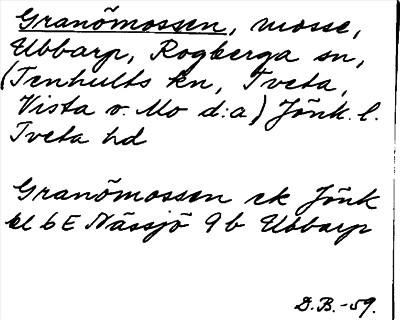 Granömossen, mosse,
Ubbarp, Rogberga sn,
(Tenhults kn, Tveta,
Vista o. Mo d:a) Jönk. l.
Tveta hd
Granömossen ek Jönk
bl 6E Nässjö 9b Ubbarp
D.B.-59.